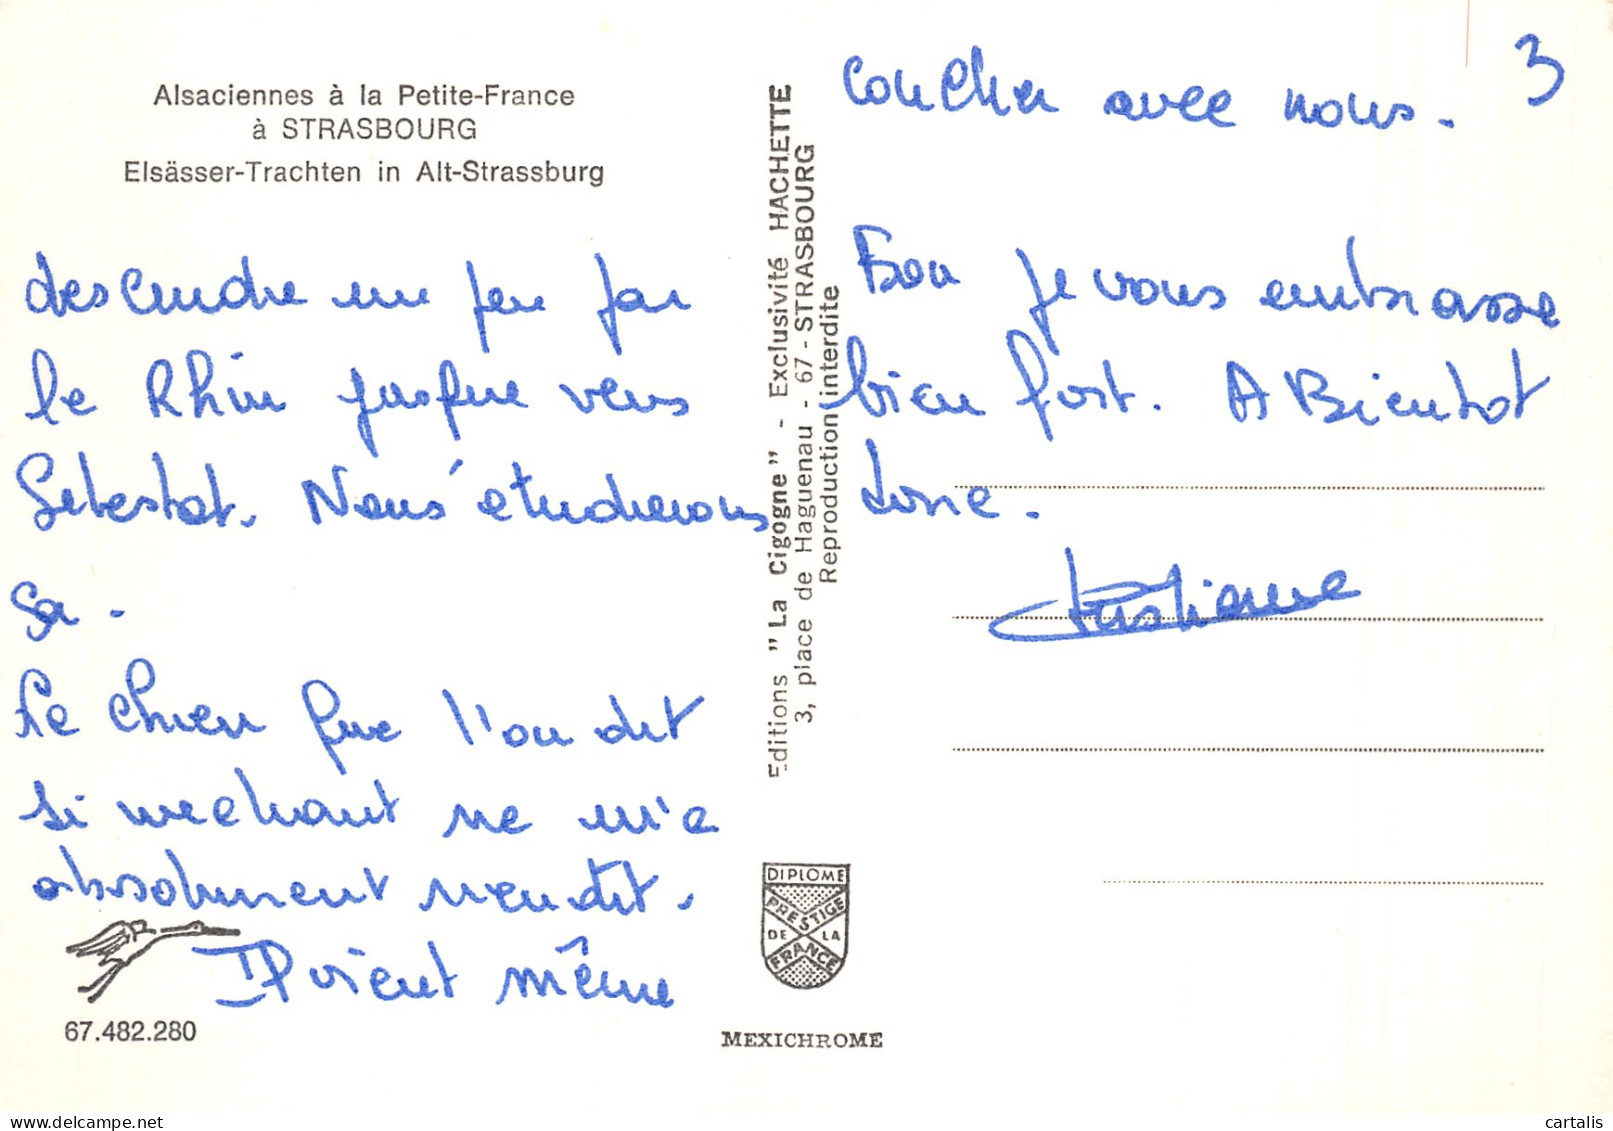 Alsaciennes à la Petite-France
à STRASBOURG
Elsässer-Trachten in Alt-Strassburg
descendre un peu par
le Rhin jusque vers
Selestat. Nous étudierons
sa.
Le chien que l'on dit
si mechant ne m'a
absolument rien dit.
Il vient même
67.482.280
Editions "La Cigogne" - Exclusivité HACHETTE
3, place de Haguenau - 67 - STRASBOURG
Reproduction interdite
DIPLOME
PRESTIGE
DE LA
FRANCE
MEXICHROME
3
coucher avec nous.
Bon je vous embrasse
bien fort. A Bientot
Christiane
cartalis
delcampe.net